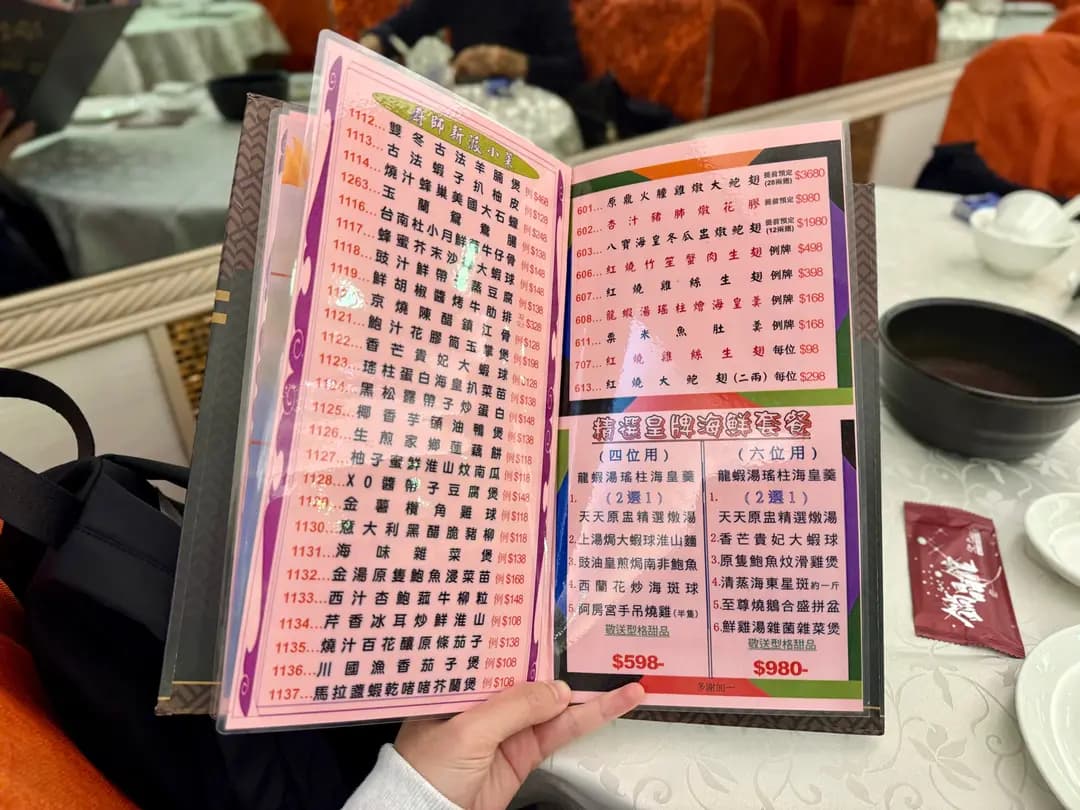 廚師新派小菜
1112...雙冬古法羊腩煲 例$468
1113...古法蝦子扒柚皮 例$128
1114...燒汁蜂巢美國大石蠔 例$248
1263...玉蘭鴛鴦腸 例$138
1116...台南杜小月鮮 牛仔骨 例$148
1117...蜂蜜芥末沙 大蝦球 例$148
1118...豉汁鮮帶 蒸豆腐 例$138
1119...鮮胡椒醬烤牛肋排 $328
京燒陳醋鎮江骨 例$128
1121...鮑汁花膠筒玉掌煲 例$198
1122...香芒貴妃大蝦球 例$128
1123...瑤柱蛋白海皇扒菜苗 例$138
黑松露帶子炒蛋白 例$148
1125...椰香芋頭油鴨煲 例$138
1126...生煎家鄉蓮藕餅 例$118
1127...柚子蜜鮮淮山炆南瓜 例$118
1128...XO醬帶子豆腐煲 例$148
1129...金薯欖角雞球 例$118
1130...意大利黑醋脆豬柳 例$118
1131...海味雜菜煲 例$138
1132...金湯原隻鮑魚浸菜苗 例$168
1133...西汁杏鮑菰牛柳粒 例$148
1134...芹香冰耳炒鮮淮山 例$108
1135...燒汁百花釀原條茄子 例$138
1136...川國漁香茄子煲 例$108
1137...馬拉盞蝦乾啫啫芥蘭煲 例$108
601...原盅火朣雞燉大鮑翅 提前預定(28兩翅) $3680
602...杏汁豬肺燉花膠 提前預定 $980
603...八寶海皇冬瓜盅燉鮑翅 提前預定(12兩翅) $1980
606...紅燒竹笙蟹肉生翅 例牌 $498
607...紅燒雞絲生翅 例牌 $398
608...龍蝦湯瑤柱燴海皇羹 例牌 $168
611...粟米魚肚羹 例牌 $168
707...紅燒雞絲生翅 每位 $98
613...紅燒大鮑翅(二兩) 每位 $298
精選皇牌海鮮套餐
(四位用)
龍蝦湯瑤柱海皇羹
1. (2選1)
天天原盅精選燉湯
2.上湯焗大蝦球淮山麵
3.豉油皇煎焗南非鮑魚
4.西蘭花炒海斑球
5.阿房宮手吊燒雞(半隻)
敬送型格甜品
$598-
(六位用)
龍蝦湯瑤柱海皇羹
1. (2選1)
天天原盅精選燉湯
2.香芒貴妃大蝦球
3.原隻鮑魚炆滑雞煲
4.清蒸海東星斑約一斤
5.至尊燒鵝合盛拼盆
6.鮮雞湯雜菌雜菜煲
敬送型格甜品
$980-
多謝加一